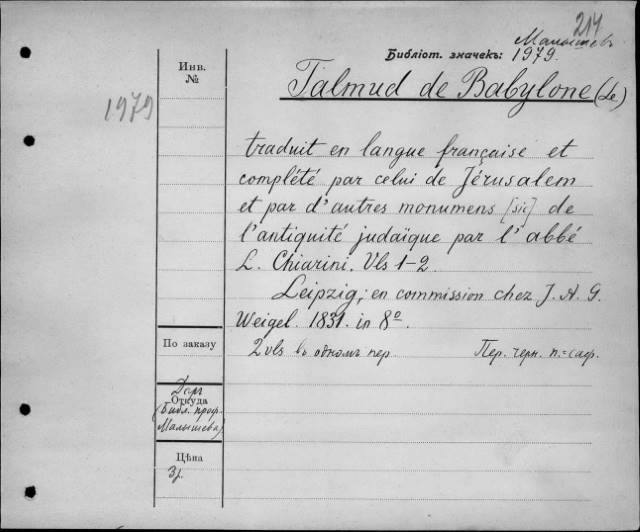 214
Малышевъ
Библіот. значекъ: 1979.
Инв.
№
1979
Talmud de Babylone (Le)
traduit en langue française et
complété par celui de Jérusalem
et par d'autres monumens [sic] de
l'antiquité judaïque par l'abbé
L. Chiarini. Vls 1-2.
Leipzig; en commission chez J. A. G.
Weigel. 1831. in 8º.
По заказу
2 vls въ одномъ пер. Пер. черн. п.=саф.
Даръ
Откуда
(Библ. проф.
Малышева)
Цѣна
3р.